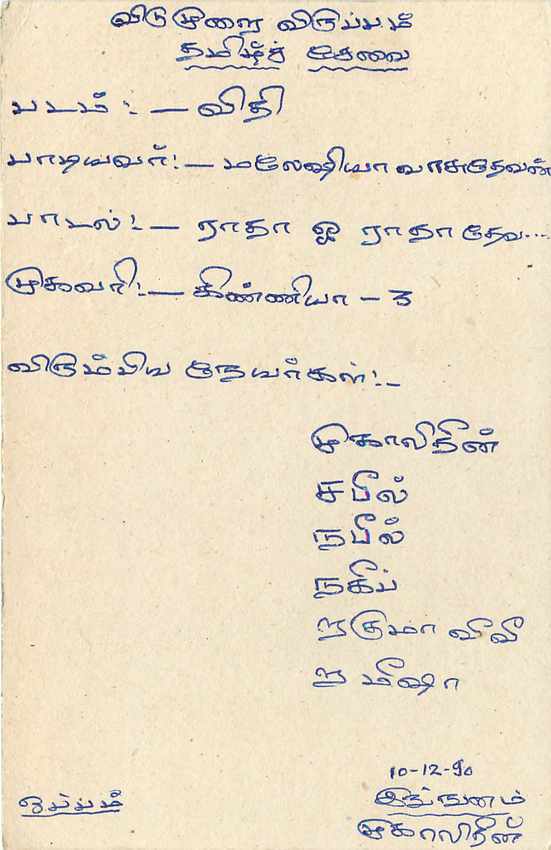 விடுமுறை விருப்பம்
தமிழ்ச் சேவை
படம் :- விதி
பாடியவர் :- மலேஷியா வாசுதேவன்
பாடல் :- ராதா ஓ ராதா தேவ....
முகவரி :- கிண்ணியா - 3
விரும்பிய நேயர்கள் :-
முகாலிதீன்
சபீல்
நபீல்
நகீப்
றகுமா வீவீ
றமீஷா
10-12-90
ஒப்பம்
இங்ஙனம்
முகாலிதீன்